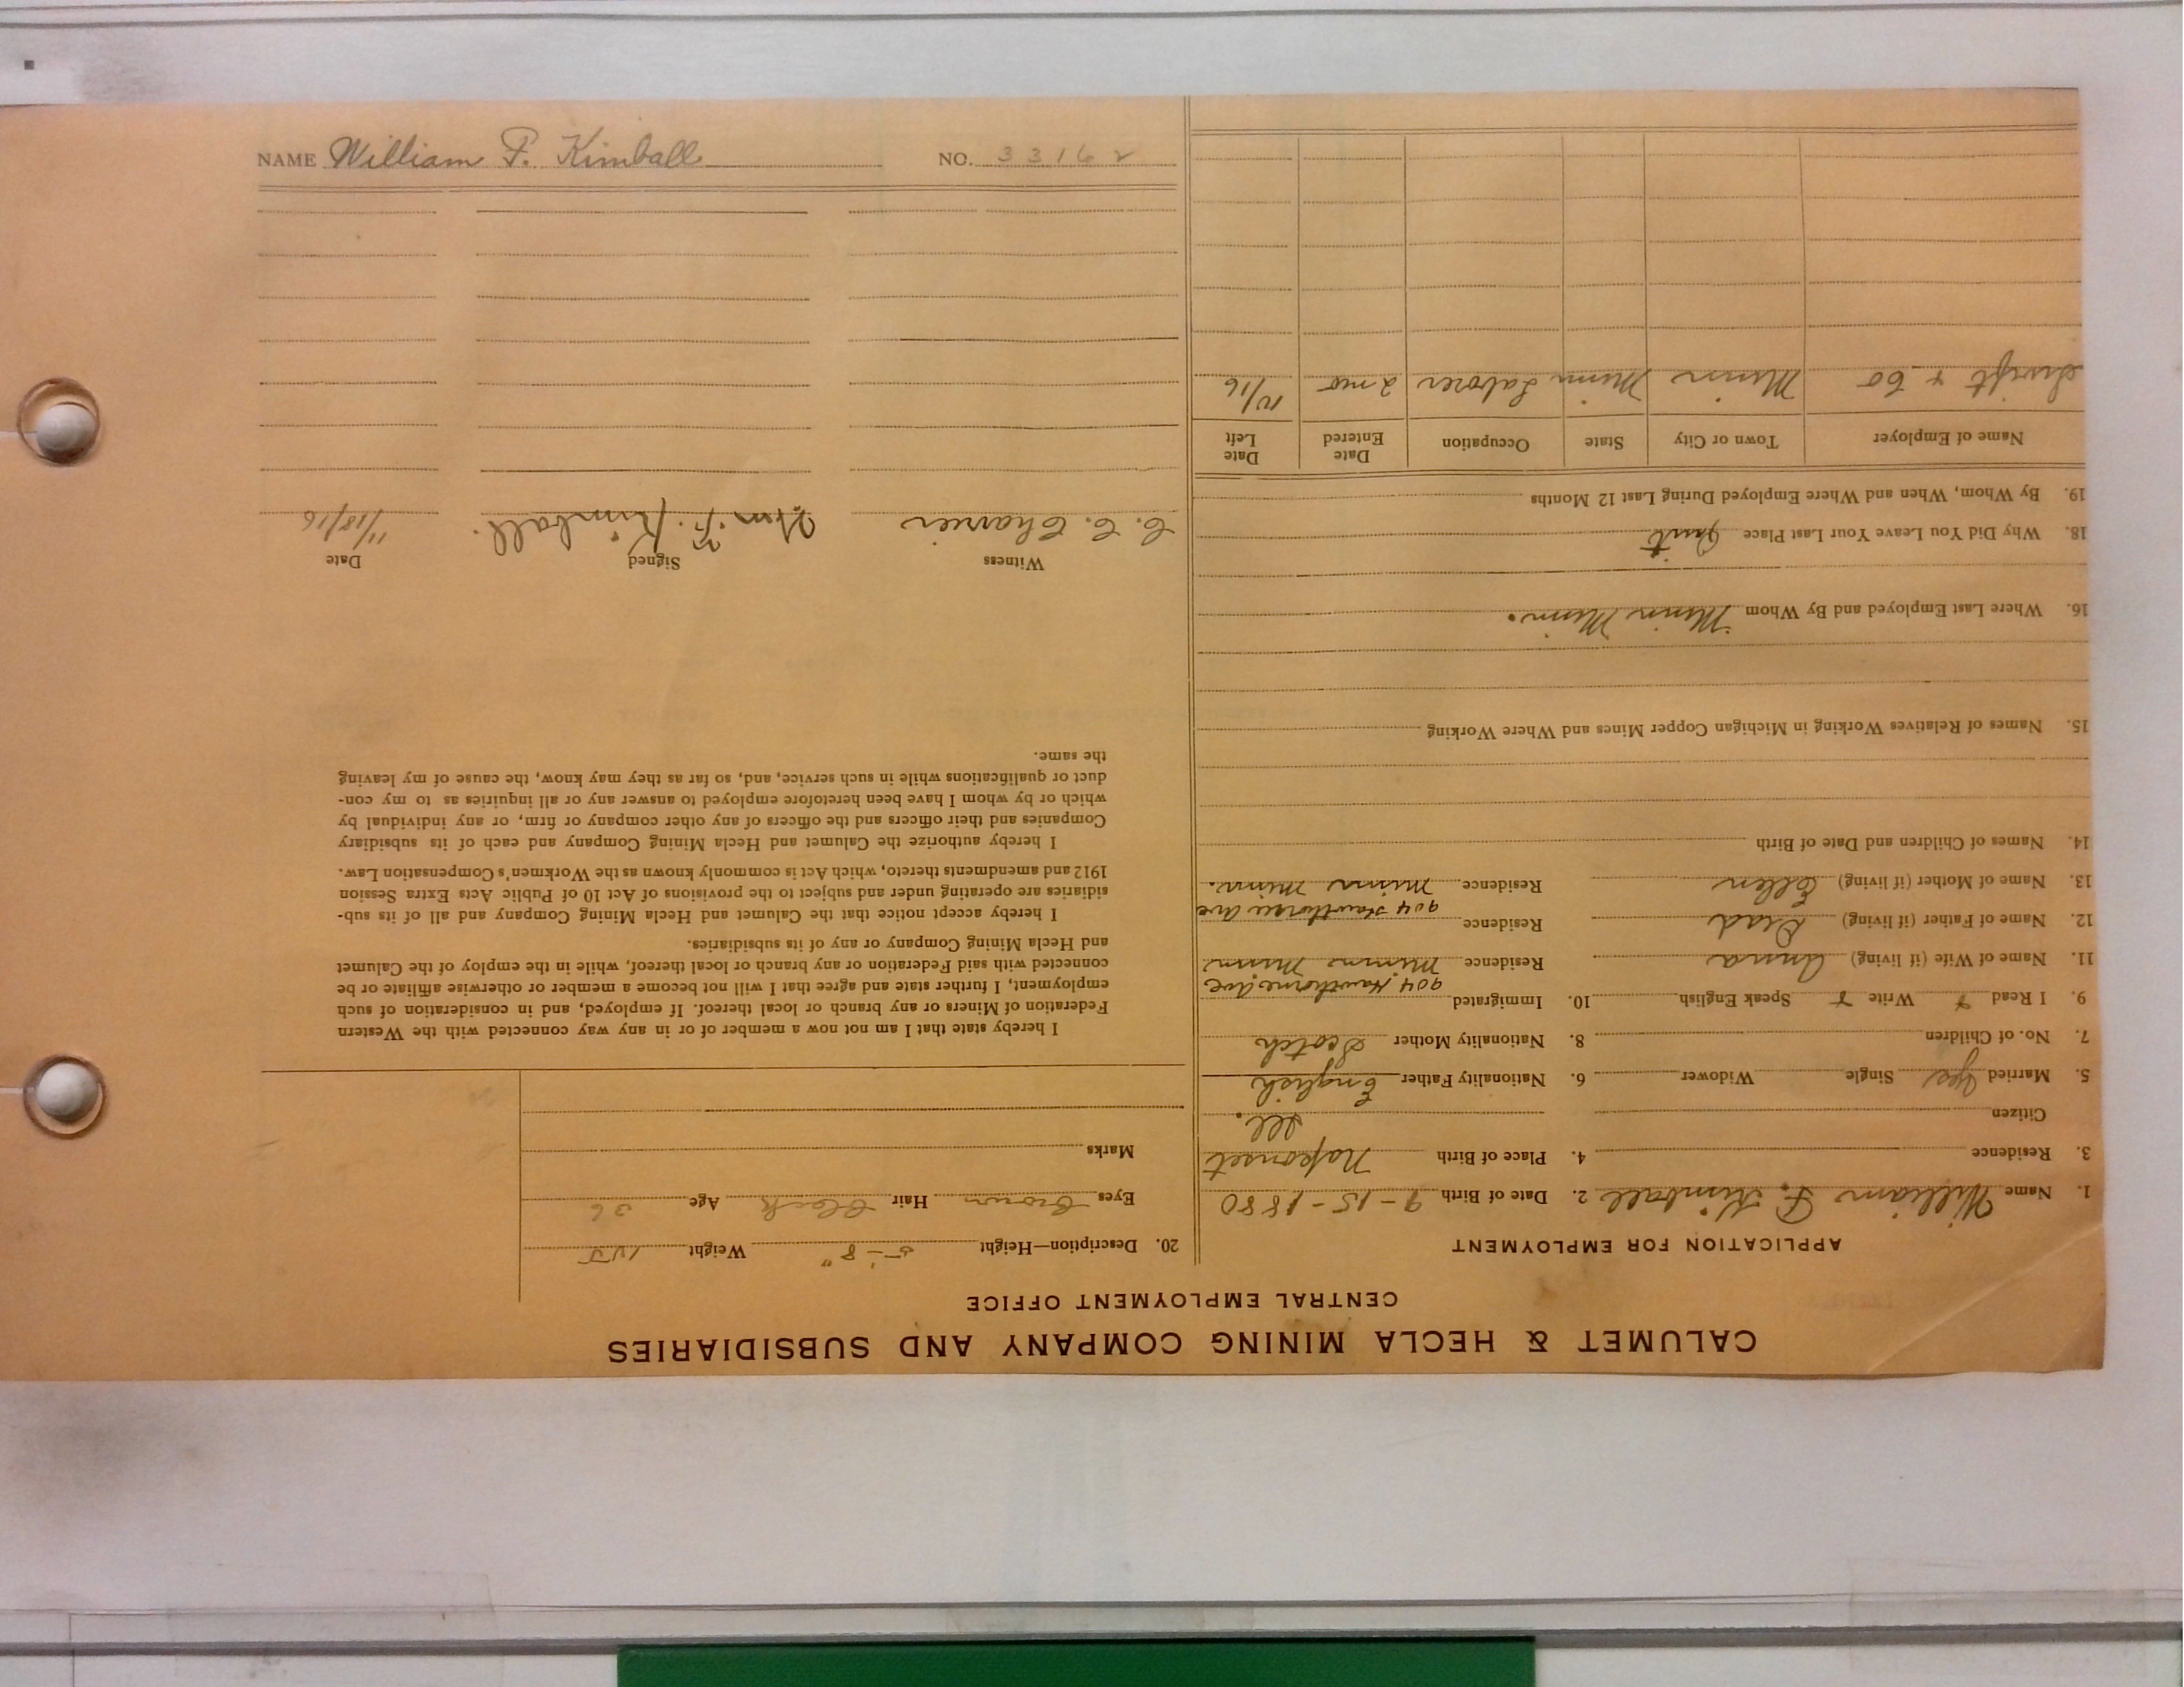 CALUMET & HECLA MINING COMPANY AND SUBSIDIARIES
CENTRAL EMPLOYMENT OFFICE
APPLICATION FOR EMPLOYMENT
1. Name William F. Kimball 2. Date of Birth 9-15-1880
3. Residence 4. Place of Birth Neponset
Citizen Ill.
5. Married Yes Single Widower 6. Nationality Father English
7. No. of Children 8. Nationality Mother Scotch
9. I Read Y Write Y Speak English 10. Immigrated
904 Hawthorne Ave
11. Name of Wife (if living) Anna Residence Minn Minn
12. Name of Father (if living) Dead Residence
904 Hawthorne Ave
13. Name of Mother (if living) Ellen Residence Minn Minn.
14. Names of Children and Date of Birth
15. Names of Relatives Working in Michigan Copper Mines and Where Working
16. Where Last Employed and By Whom Minn Minn.
18. Why Did You Leave Your Last Place Quit
19. By Whom, When and Where Employed During Last 12 Months
Name of Employer Town or City State Occupation Date Entered Date Left
Swift & Co Minn Minn Laborer 2 mo 10/16
20. Description—Height 5'-8" Weight 155
Eyes Brown Hair Black Age 36
Marks
I hereby state that I am not now a member of or in any way connected with the Western
Federation of Miners or any branch or local thereof. If employed, and in consideration of such
employment, I further state and agree that I will not become a member or otherwise affiliate or be
connected with said Federation or any branch or local thereof, while in the employ of the Calumet
and Hecla Mining Company or any of its subsidiaries.
I hereby accept notice that the Calumet and Hecla Mining Company and all of its sub-
sidiaries are operating under and subject to the provisions of Act 10 of Public Acts Extra Session
1912 and amendments thereto, which Act is commonly known as the Workmen's Compensation Law.
I hereby authorize the Calumet and Hecla Mining Company and each of its subsidiary
Companies and their officers and the officers of any other company or firm, or any individual by
which or by whom I have been heretofore employed to answer any or all inquiries as to my con-
duct or qualifications while in such service, and, so far as they may know, the cause of my leaving
the same.
Witness Signed Date
C. C. Wm. F. Kimball. 11/18/16
NAME William F. Kimball NO. 33162